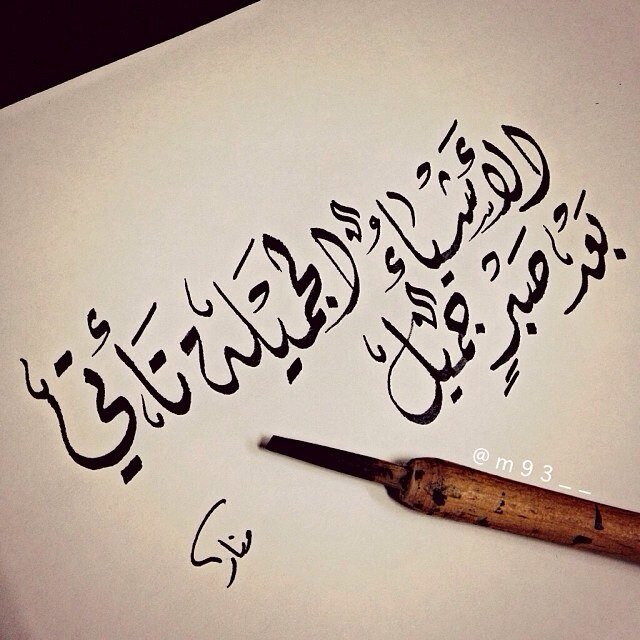 الأَشْيَاءُ الجَمِيْلَة تَأْتِي
بَعْدَ صَبْرٍ جَمِيْل
@m93__
منار